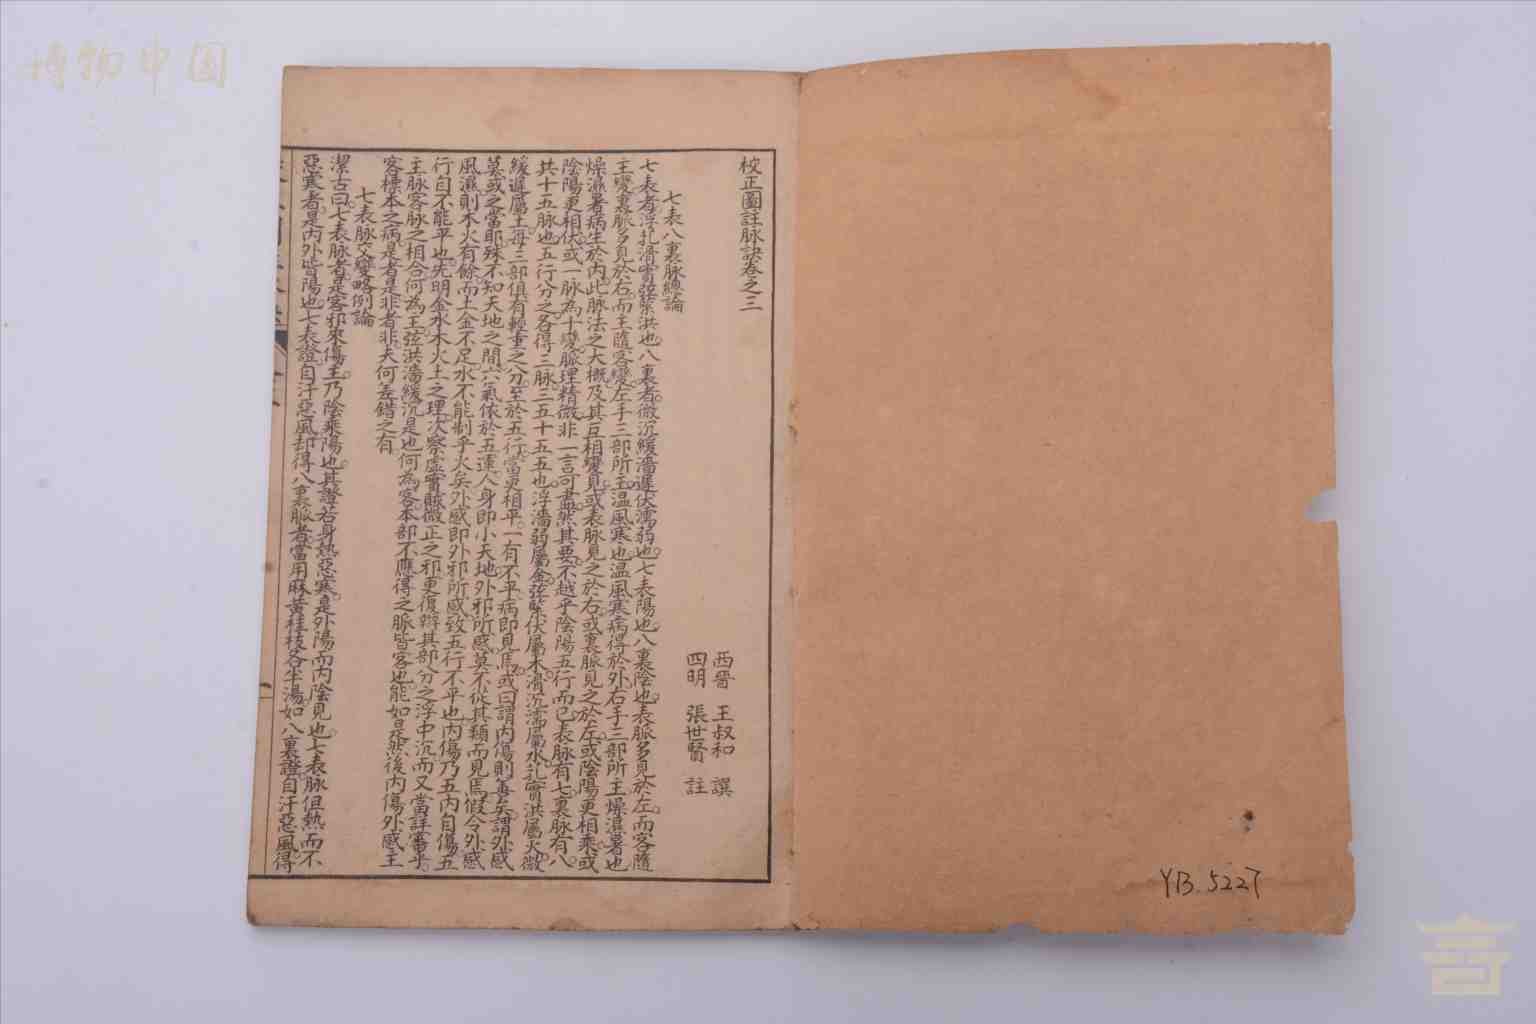 博物中国
校正圖註脉訣卷之三
西晉 王叔和 譔
四明 張世賢 註
七表八裏脉總論
七表者浮芤滑實弦緊洪也八裏者微沉緩濇遲伏濡弱也七表陽也八裏陰也表脈多見於左而客隨
主變裏脈多見於右而主隨客變左手三部所主温風寒也温風寒病得於外右手三部所主燥濕暑也
燥濕暑病生於内此脉法之大概及其互相變見或表脉見之於右或裏脈見之於左或陰陽更相乘或
陰陽更相伏或一脉為十變脈理精微非一言可盡然其要不越乎陰陽五行而已表脉有七裏脉有八
共十五脉也五行分之各得三脉三五十五也浮濇弱屬金弦緊伏屬木滑沉濡屬水芤實洪屬火微
緩遲屬土每三部俱有輕重之分至於五行當更相平一有不平病即見焉或曰謂内傷則善矣謂外感
莫或之當耶殊不知天地之間六氣依於五運人身即小天地外邪所感莫不從其類而見焉假令外感
風濕則木火有餘而土金不足水不能制乎火矣外感即外邪所感致五行不平也内傷乃五内自傷五
行自不能平也先明金水木火土之理次察虚實賊微正之邪更復辨其部分之浮中沉而又當詳審乎
主脉客脉之相合何為主弦洪濇緩沉是也何為客本部不應得之脈皆客也能如是然後内傷外感主
客標本之病是者是非者非夫何差錯之有
七表脉交變略例論
潔古曰七表脉者是客邪來傷主乃陰乘陽也其證若身熱惡寒是外陽而内陰見也七表脉但熱而不
惡寒者是内外皆陽也七表證自汗惡風却得八裏脈者當用麻黄桂枝各半湯如八裏證自汗惡風得
YB.5227